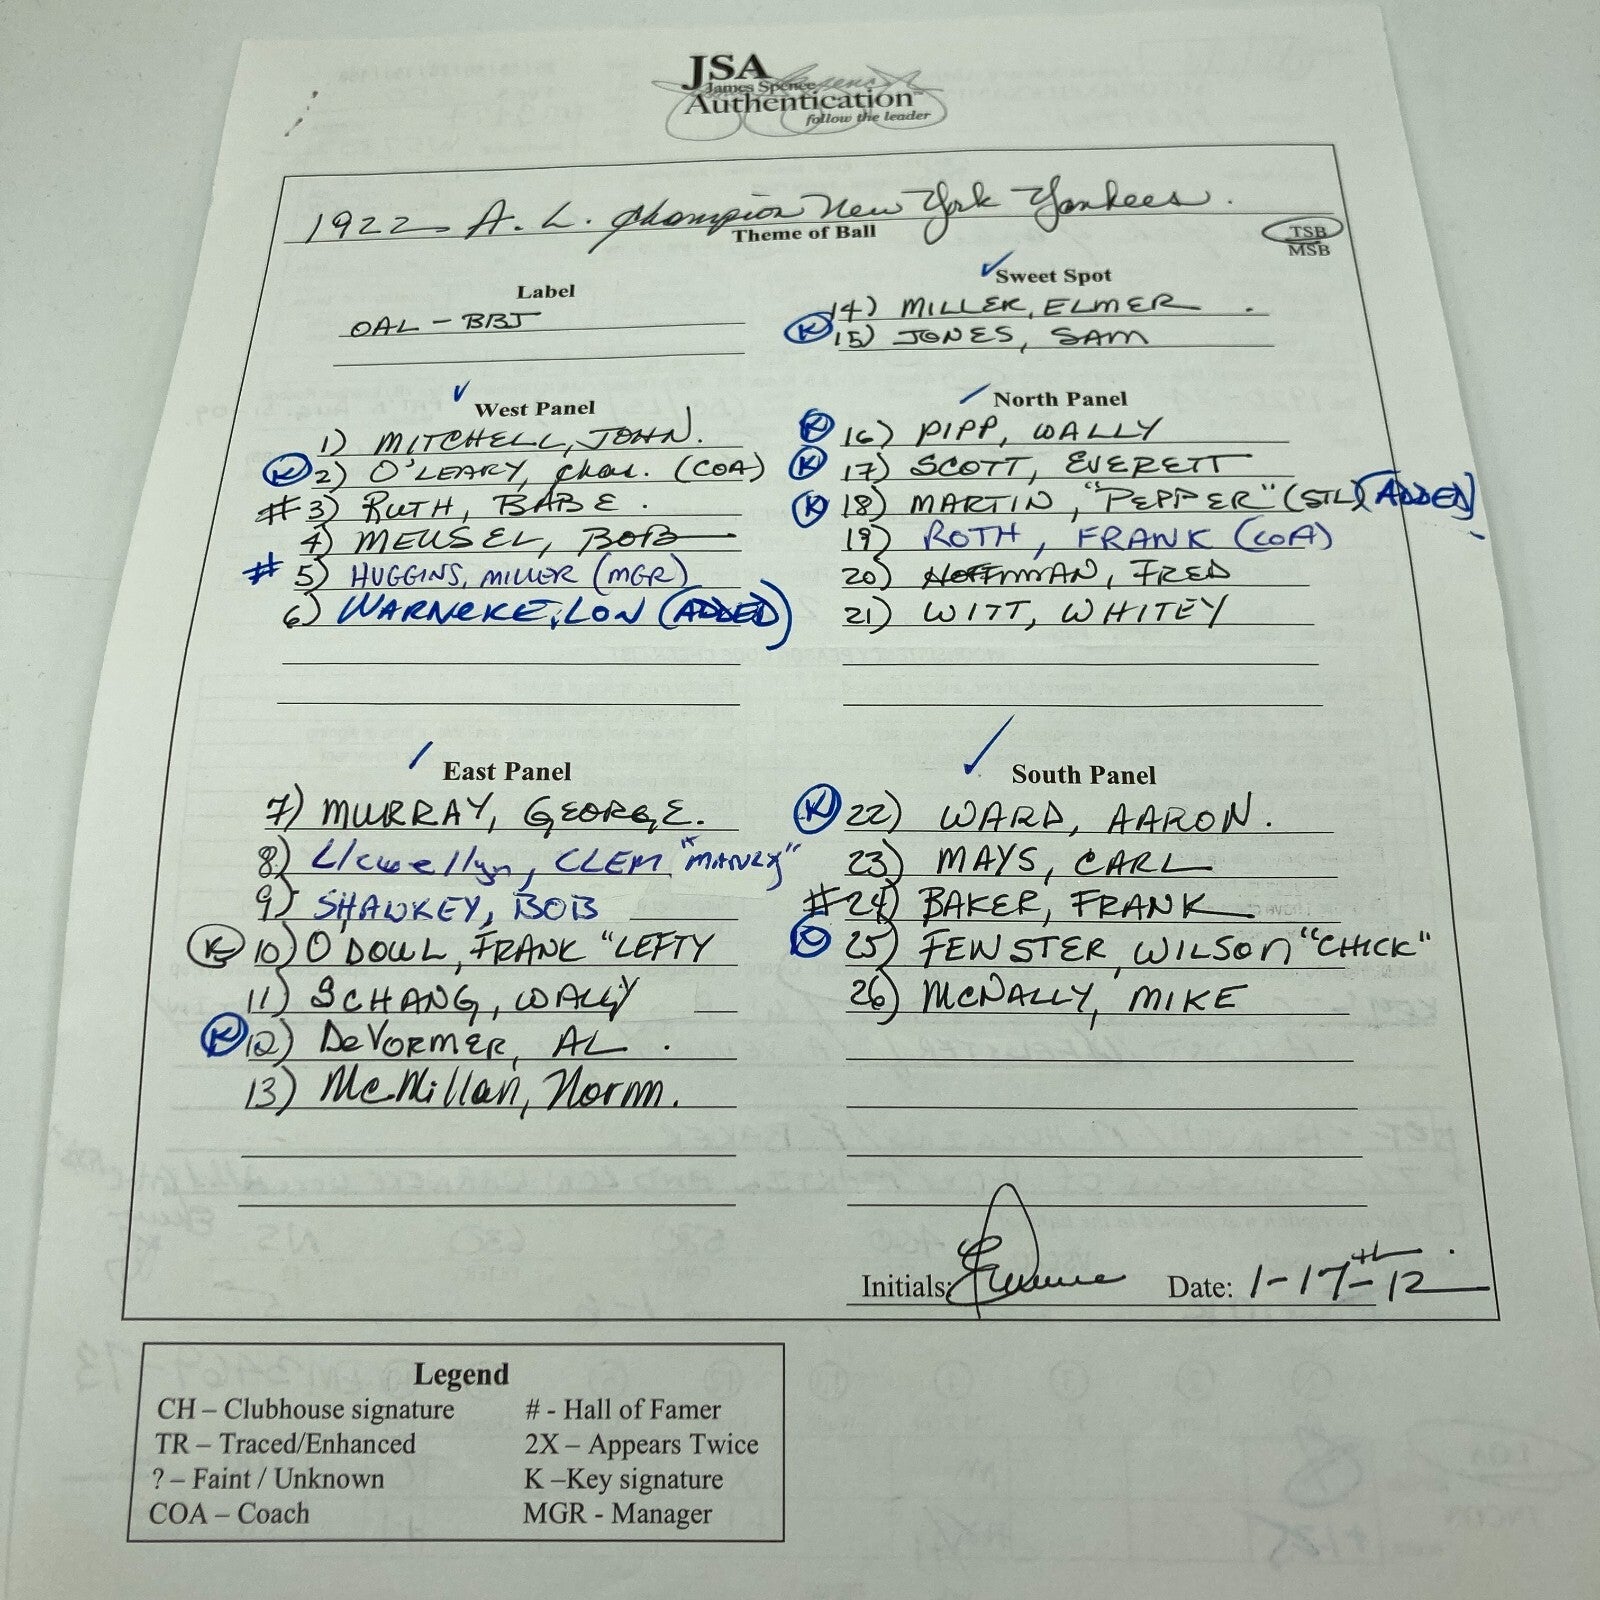 JSA
James Spence
Authentication™
follow the leader
1922 A. L. Champion New York Yankees.
Theme of Ball
TSB
MSB
Label
OAL - BBJ
Sweet Spot
14) MILLER, ELMER
K 15) JONES, SAM
West Panel
1) MITCHELL, JOHN.
K 2) O'LEARY, Chas. (COA)
# 3) RUTH, BABE.
4) MEUSEL, BOB
# 5) HUGGINS, MILLER (MGR)
6) WARNEKE, LON (ADDED)
North Panel
K 16) PIPP, WALLY
K 17) SCOTT, EVERETT
K 18) MARTIN, "PEPPER" (STL) (ADDED)
19) ROTH, FRANK (COA)
20) HOFFMAN, FRED
21) WITT, WHITEY
East Panel
7) MURRAY, GEORGE.
8) Llewellyn, CLEM "MANLY"
9) SHAWKEY, BOB
K 10) O DOUL, FRANK "LEFTY
11) SCHANG, WALLY
K 12) DeVORMER, AL.
13) McMillan, Norm.
South Panel
K 22) WARD, AARON.
23) MAYS, CARL
# 24) BAKER, FRANK
25) FEWSTER, WILSON "CHICK"
26) McNALLY, MIKE
Initials:
Date: 1-17th-12
Legend
CH – Clubhouse signature
# - Hall of Famer
TR – Traced/Enhanced
2X – Appears Twice
? – Faint / Unknown
K –Key signature
COA – Coach
MGR - Manager